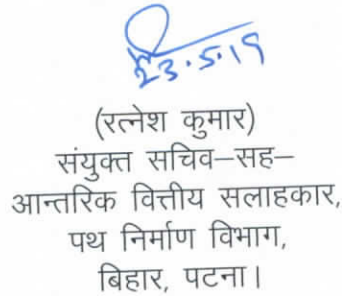 23.5.19
(रत्नेश कुमार)
संयुक्त सचिव–सह–
आन्तरिक वित्तीय सलाहकार,
पथ निर्माण विभाग,
बिहार, पटना।